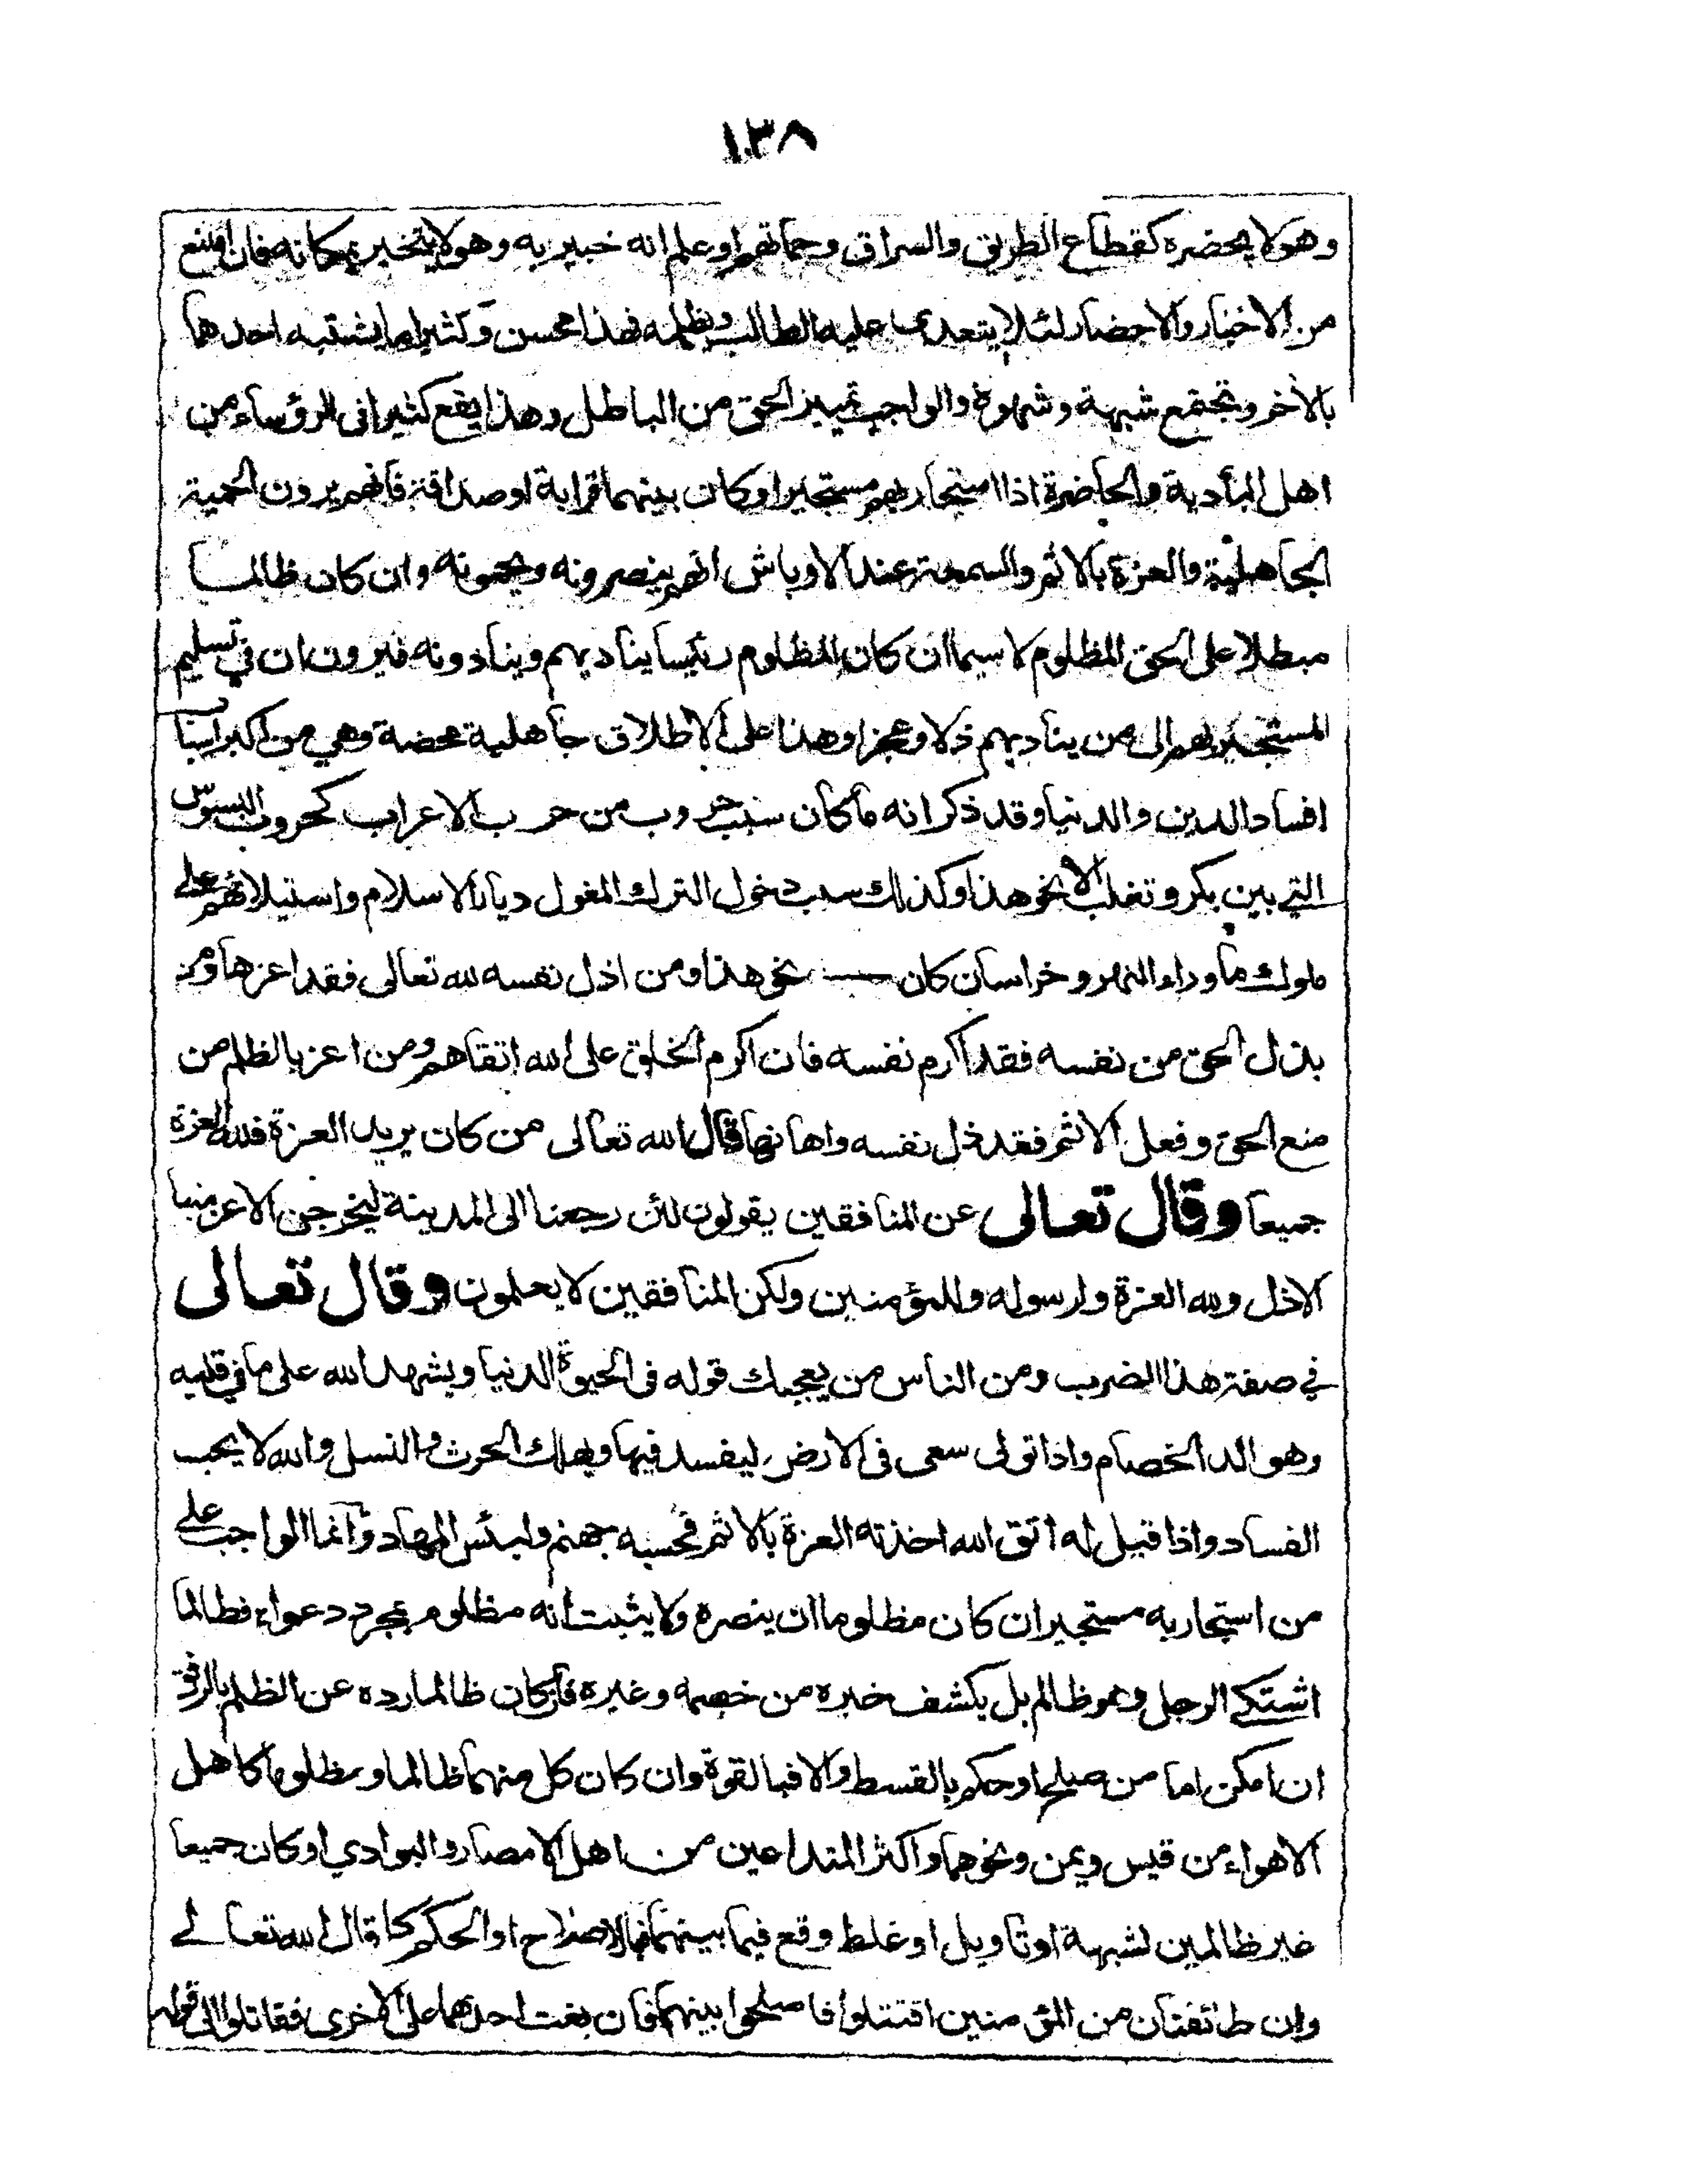 ١٣٨
وهو لا يحضره كقطاع الطريق والسراق وحماتهم او علم انه خبير به وهو لا يتخير بمكانه فان امتنع
من الاخبار والاحضار لئلا يتعدى عليه الطالب ويظلمه فهذا محسن وكثيرا ما يشتبه احدهما
بالآخر وتجتمع شبهة وشهوة والواجب تمييز الحق من الباطل وهذا يقع كثيرا في الرؤساء من
اهل البادية والحاضرة اذا استجار بهم مستجير او كان بينهما قرابة او صداقة فانهم يرون الحمية
الجاهلية والعزة بالاثم والسمعة عند الاوباش انهم ينصرونه ويحمونه وان كان ظالما
مبطلا على الحق المظلوم لا سيما ان كان المظلوم رئيسا يناديهم وينادونه فيرون ان في تسليم
المستجير بهم الى من يناديهم ذلا وعجزا وهذا على الاطلاق جاهلية محضة وهي من اكبر اسباب
افساد الدين والدنيا وقد ذكر انه ما كان سبب حروب من حرب الاعراب كحروب البسوس
التي بين بكر وتغلب الا نحو هذا وكذلك سبب دخول الترك المغول ديار الاسلام واستيلائهم على
ملوك ما وراء النهر وخراسان كان نحو هذا ومن اذل نفسه لله تعالى فقد اعزها ومن
بذل الحق من نفسه فقد اكرم نفسه فان اكرم الخلق على الله اتقاهم ومن اعز بالظلم من
منع الحق وفعل الاثم فقد ذل نفسه واهانها قال الله تعالى من كان يريد العزة فلله العزة
جميعا وقال تعالى عن المنافقين يقولون لئن رجعنا الى المدينة ليخرجن الاعز منها
الاذل ولله العزة ولرسوله وللمؤمنين ولكن المنافقين لا يعلمون وقال تعالى
في صفة هذا الضرب ومن الناس من يعجبك قوله في الحيوة الدنيا ويشهد الله على ما في قلبه
وهو الد الخصام واذا تولى سعى في الارض ليفسد فيها ويهلك الحرث والنسل والله لا يحب
الفساد واذا قيل له اتق الله اخذته العزة بالاثم فحسبه جهنم ولبئس المهاد وانما الواجب على
من استجار به مستجير ان كان مظلوما ان ينصره ولا يثبت انه مظلوم بمجرد دعواه فطالما
اشتكى الرجل وهو ظالم بل يكشف خبره من خصمه وغيره فان كان ظالما رده عن الظلم بالرفق
ان امكن اما من صلح او حكم بالقسط والا فبالقوة وان كان كل منهما ظالما ومظلوما كاهل
الاهواء من قيس ويمن ونحوهما واكثر المتداعين من اهل الامصار والبوادي او كان جميعا
غير ظالمين لشبهة او تاويل او غلط وقع فيما بينهما فالاصلاح او الحكم كما قال الله تعالى
وان طائفتان من المؤمنين اقتتلوا فاصلحوا بينهما فان بغت احداهما على الاخرى فقاتلوا الى قوله